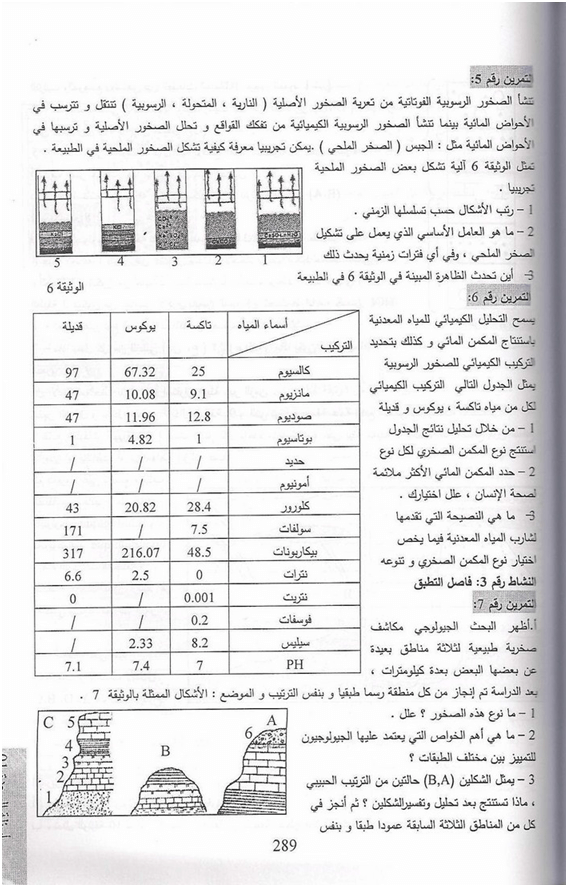 التمرين رقم 5:
تنشأ الصخور الرسوبية الفوتاتية من تعرية الصخور الأصلية ( النارية ، المتحولة ، الرسوبية ) تنتقل و تترسب في
الأحواض المائية بينما تنشأ الصخور الرسوبية الكيميائية من تفكك القواقع و تحلل الصخور الأصلية و ترسبها في
الأحواض المائية مثل : الجبس ( الصخر الملحي ) .يمكن تجريبيا معرفة كيفية تشكل الصخور الملحية في الطبيعة .
تمثل الوثيقة 6 آلية تشكل بعض الصخور الملحية
تجريبيا .
1 – رتب الأشكال حسب تسلسلها الزمني .
2 – ما هو العامل الأساسي الذي يعمل على تشكيل
الصخر الملحي ، وفي أي فترات زمنية يحدث ذلك
3– أين تحدث الظاهرة المبينة في الوثيقة 6 في الطبيعة
1 2 3 4 5
الوثيقة 6
التمرين رقم 6:
يسمح التحليل الكيميائي للمياه المعدنية
باستنتاج المكمن المائي و كذلك بتحديد
التركيب الكيميائي للصخور الرسوبية
يمثل الجدول التالي التركيب الكيميائي
لكل من مياه تاكسة ، يوكوس و قديلة
1 – من خلال تحليل نتائج الجدول
استنتج نوع المكمن الصخري لكل نوع
2 – حدد المكمن المائي الأكثر ملائمة
لصحة الإنسان ، علل اختيارك .
3– ما هي النصيحة التي تقدمها
لشارب المياه المعدنية فيما يخص
اختيار نوع المكمن الصخري و تنوعه
أسماء المياه التركيب تاكسة يوكوس قديلة
كالسيوم 25 67.32 97
مانزيوم 9.1 10.08 47
صوديوم 12.8 11.96 47
بوتاسيوم 1 4.82 1
حديد / / /
أمونيوم / / /
كلورور 28.4 20.82 43
سولفات 7.5 / 171
بيكاربونات 48.5 216.07 317
نترات 0 2.5 6.6
نتريت 0.001 / 0
فوسفات 0.2 / /
سيليس 8.2 2.33 /
PH 7 7.4 7.1
النشاط رقم 3: فاصل التطبق
التمرين رقم 7:
أ.أظهر البحث الجيولوجي مكاشف
صخرية طبيعية لثلاثة مناطق بعيدة
عن بعضها البعض بعدة كيلومترات ،
بعد الدراسة تم إنجاز من كل منطقة رسما طبقيا و بنفس الترتيب و الموضع : الأشكال الممثلة بالوثيقة 7 .
1 – ما نوع هذه الصخور ؟ علل .
2 – ما هي أهم الخواص التي يعتمد عليها الجيولوجيون
للتمييز بين مختلف الطبقات ؟
3 – يمثل الشكلين (B,A) حالتين من الترتيب الحبيبي
، ماذا تستنتج بعد تحليل وتفسيرالشكلين ؟ ثم أنجز في
كل من المناطق الثلاثة السابقة عمودا طبقا و بنفس
A 6
B
C 5 4 3 2 1
289